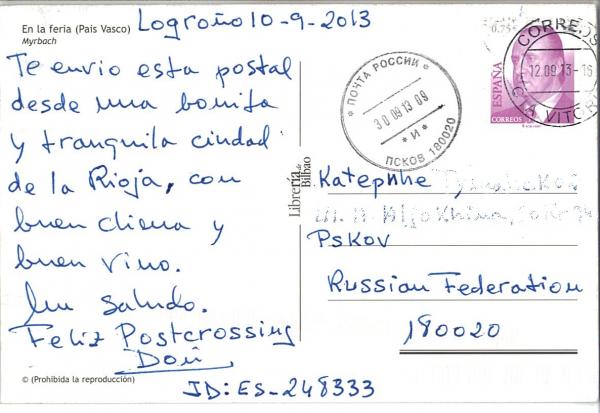 En la feria (Pais Vasco)
Myrbach
Logroño 10-9-2013
Te envio esta postal
desde una bonita
y tranquila ciudad
de la Rioja, con
buen cliema y
buen vino.
Un saludo.
Feliz Postcrossing
© (Prohibida la reproducción)
ID: ES-248333
Librería de Bilbao
ПОЧТА РОССИИ
30 09 13 09
*И*
ПСКОВ 180020
0,75
ESPAÑA
CORREOS
CORREOS
12.09.13-16
Катерине
Pskov
Russian Federation
180020